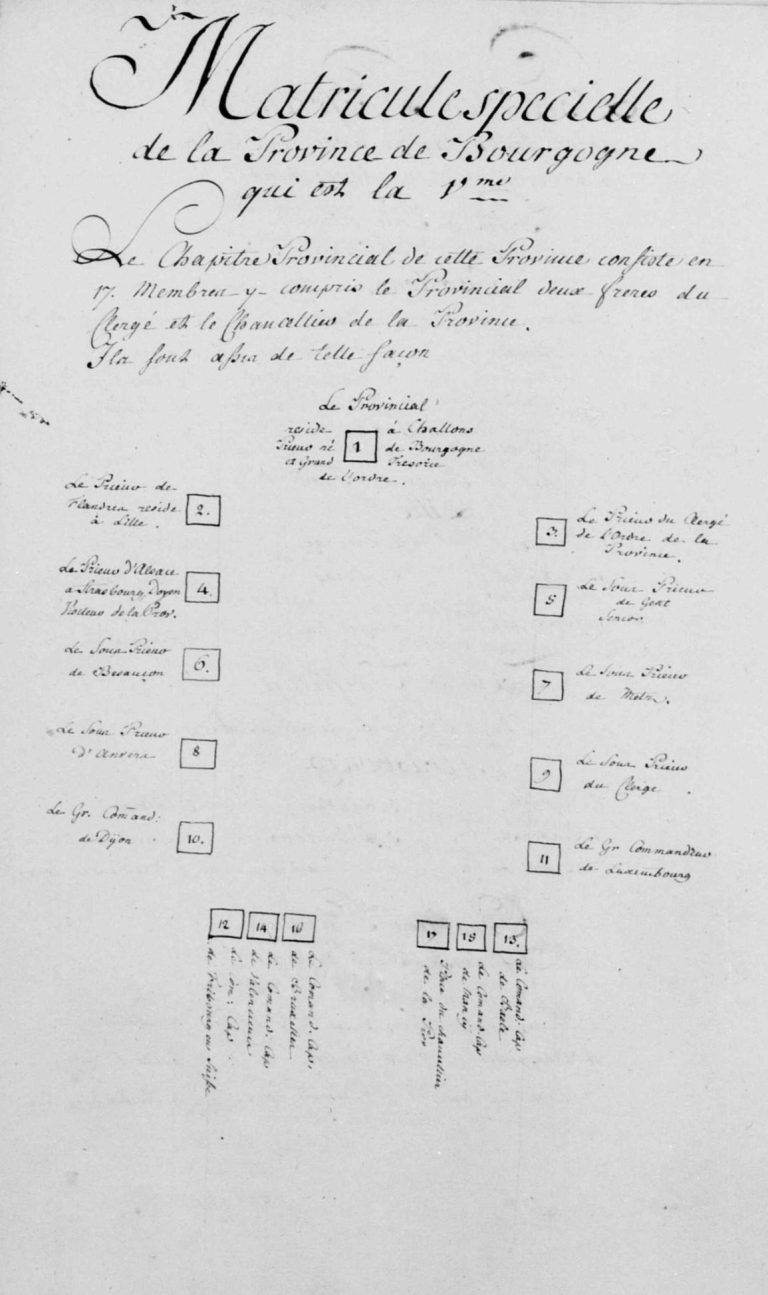 Matricule specielle
de la Province de Bourgogne
qui est la V.me
Le Chapitre Provincial de cette Province consiste en
17. Membres y compris le Provincial deux freres du
Clergé et le Chancellier de la Province.
Ils sont assis de telle façon
Le Provincial
reside 1 à Challons
Prieur né de Bourgogne
et Grand Tresorie
de l'ordre.
Le Prieur de
Flandres reside
à Lille.
2.
3.
Le Prieur du Clergé
de l'Ordre de la
Province.
Le Prieur d'Alsace
a Strasbourg Doyen
de la Prov.
4.
5
Le Sous Prieur
de
Senior.
Le Sous Prieur
de Besançon
6.
7
Le Sous Prieur
de Metz.
Le Sous Prieur
d'Anvers
8
9
Le Sous Prieur
du Clergé.
Le Gr. Comand:
de Dijon
10.
11
Le Gr Commandeur
de Luxembourg
12
Le Com: Cap
de Fribourg en Suisse
14
Le Comand. Cap
de Valencienes
16
Le Comand. Cap.
de Bruxelles
17
Place du chancelier
de la Prov
15
Le Comand. Cap
de Nancy
13.
Le Comand. Cap
de Basle